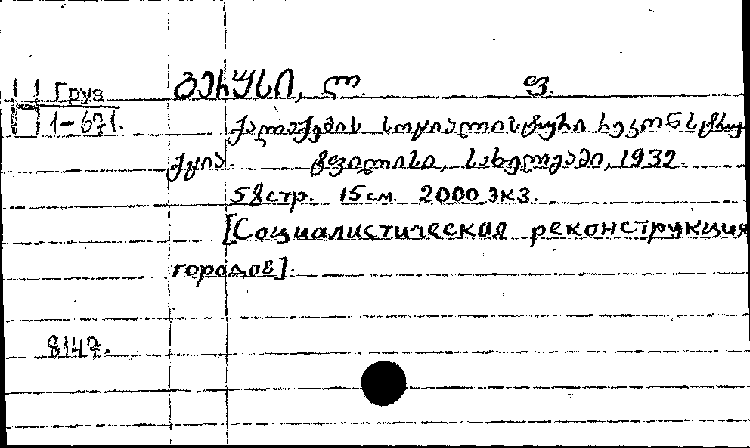 Груз
1-671.
პერჟსი, ლ. ფ.
ქალაქების სოციალისტური რეკონსტრუ
ქცია. ტფილისი, სახელგამი, 1932.
58 стр. 15 см. 2000 экз.
[Социалистическая реконструкция
городов].
8147.